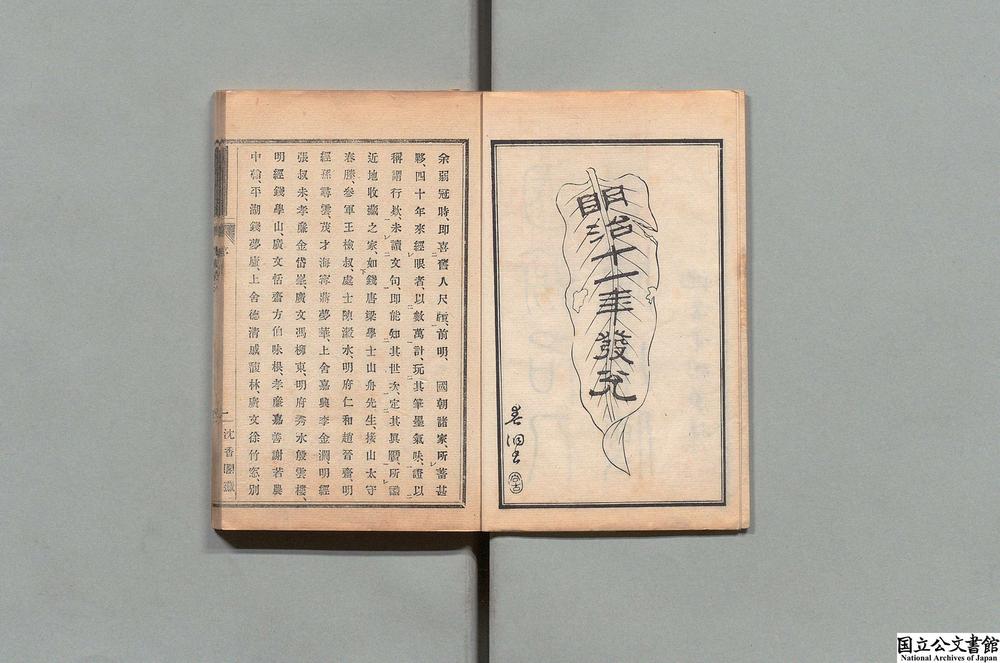 明治十一年發兌
余弱冠時、即喜舊人尺牘、前明、國朝諸家、所蓄甚
夥、四十年來經眼者、以數萬計、玩其筆墨氣味、證以
稱謂行欵、未讀文句、即能知其世次、定其眞贋、所識
近地收藏之家、如錢唐梁學士山舟先生、接山太守
春滕、參軍王檢叔、處士陳瀫水、明府仁和趙晉齋、明
經孫尋雲、茂才海寧蔣夢華、上舍嘉興李金瀾、明經
張叔未、孝廉金岱峯、廣文馮柳東、明府秀水殷雲樓、
明經錢學山、廣文恬齋方伯味根、孝廉嘉善謝若農
中翰、平湖錢夢廬、上舍德清戚馥林、廣文徐竹窓、別
二
沈香閣藏
国立公文書館
National Archives of Japan